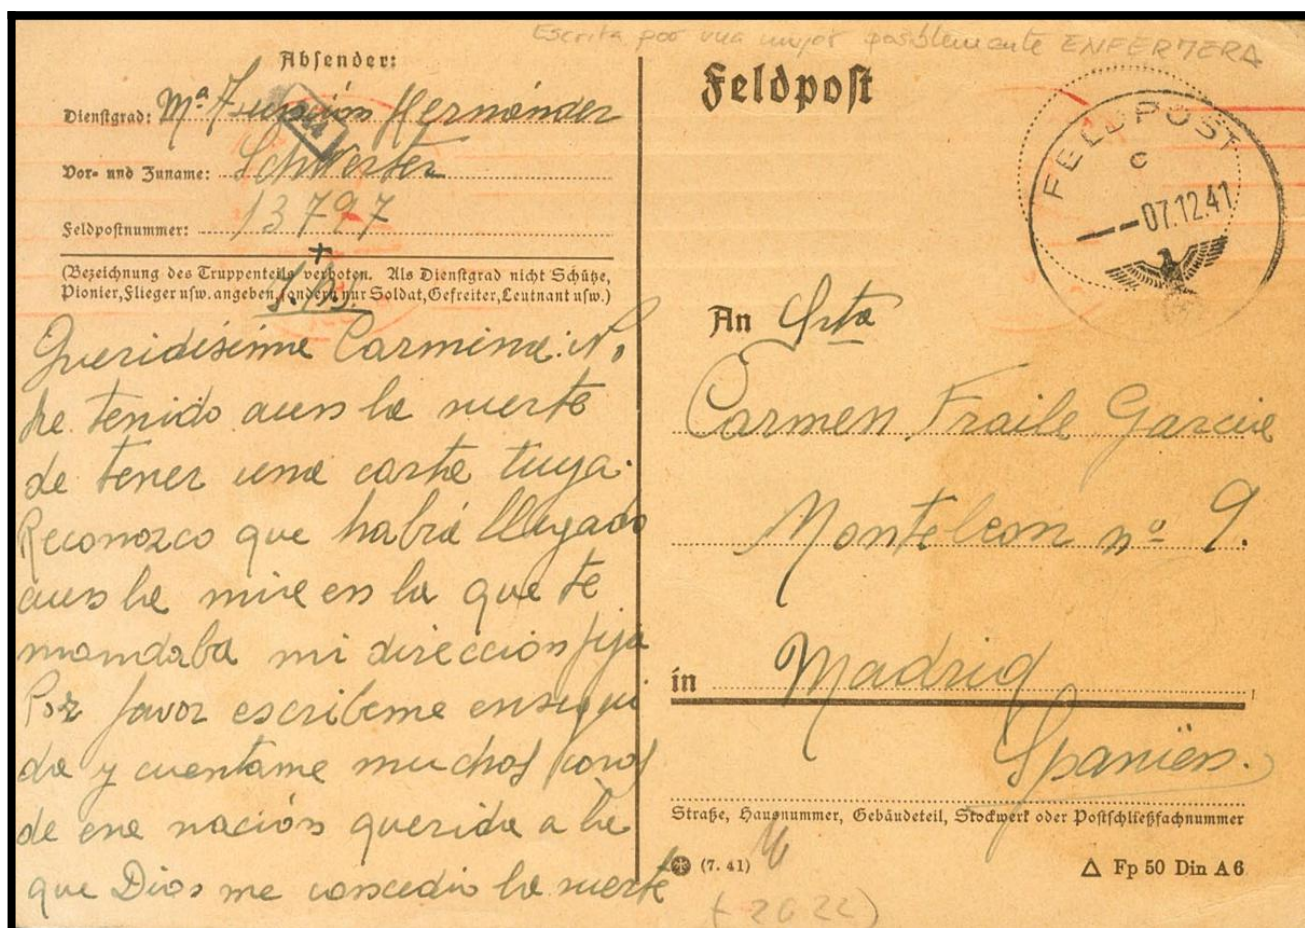 Escrita por una mujer posiblemente ENFERMERA
Absender:
Dienstgrad: Mª Hernández
Vor- und Zuname: Schwester
Feldpostnummer: 13797
(Bezeichnung des Truppenteils verboten. Als Dienstgrad nicht Schütze,
Pionier, Flieger usw. angeben, sondern nur Soldat, Gefreiter, Leutnant usw.)
Queridísima Carmina: No
he tenido aun la suerte
de tener una carta tuya.
Reconozco que habrá llegado
aun la mía en la que te
mandaba mi dirección fija
Por favor escribeme ensegui
da y cuentame muchas cosas
de esa nación querida a la
que Dios me concedio la suerte
Feldpost
FELDPOST
c
--07.12.41
An Srta
Carmen Fraile Garcia
Monteleon nº 9.
in Madrid
Spanien.
Straße, Hausnummer, Gebäudeteil, Stockwerk oder Postschließfachnummer
(7. 41)
△ Fp 50 Din A 6
(2622)